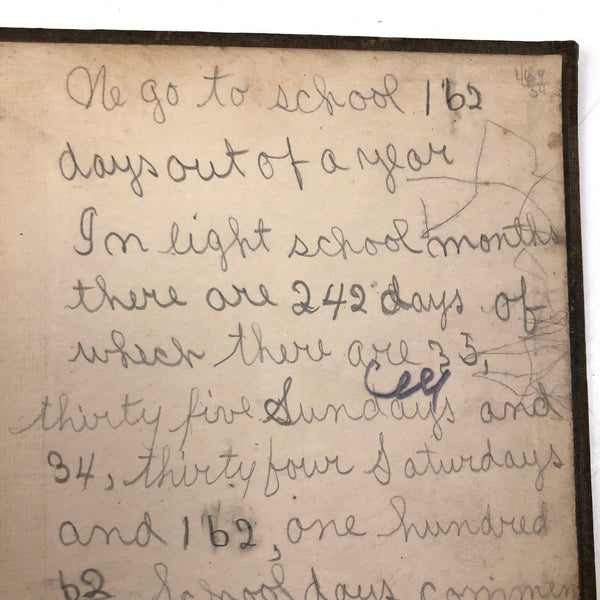 We go to school 162
days out of a year
In eight school months
there are 242 days of
which there are 35,
thirty five Sundays and
34, thirty four Saturdays
and 162, one hundred
62 School days commen